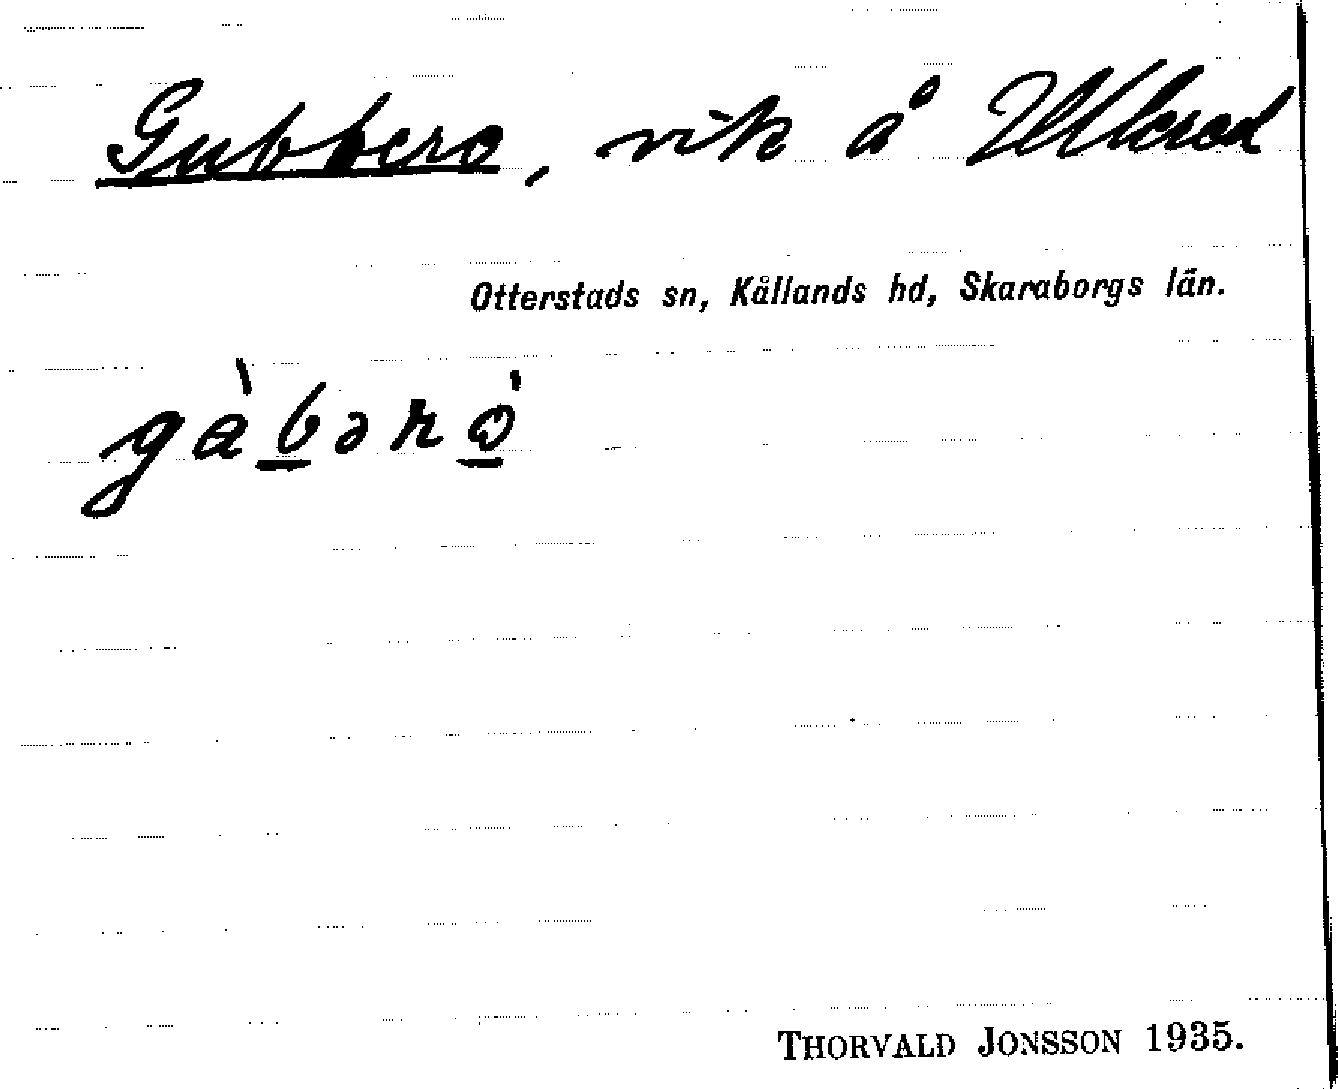 Gubbero, vik å Ullerud
Otterstads sn, Kållands hd, Skaraborgs län.
gàbərǫ̀
THORVALD JONSSON 1935.